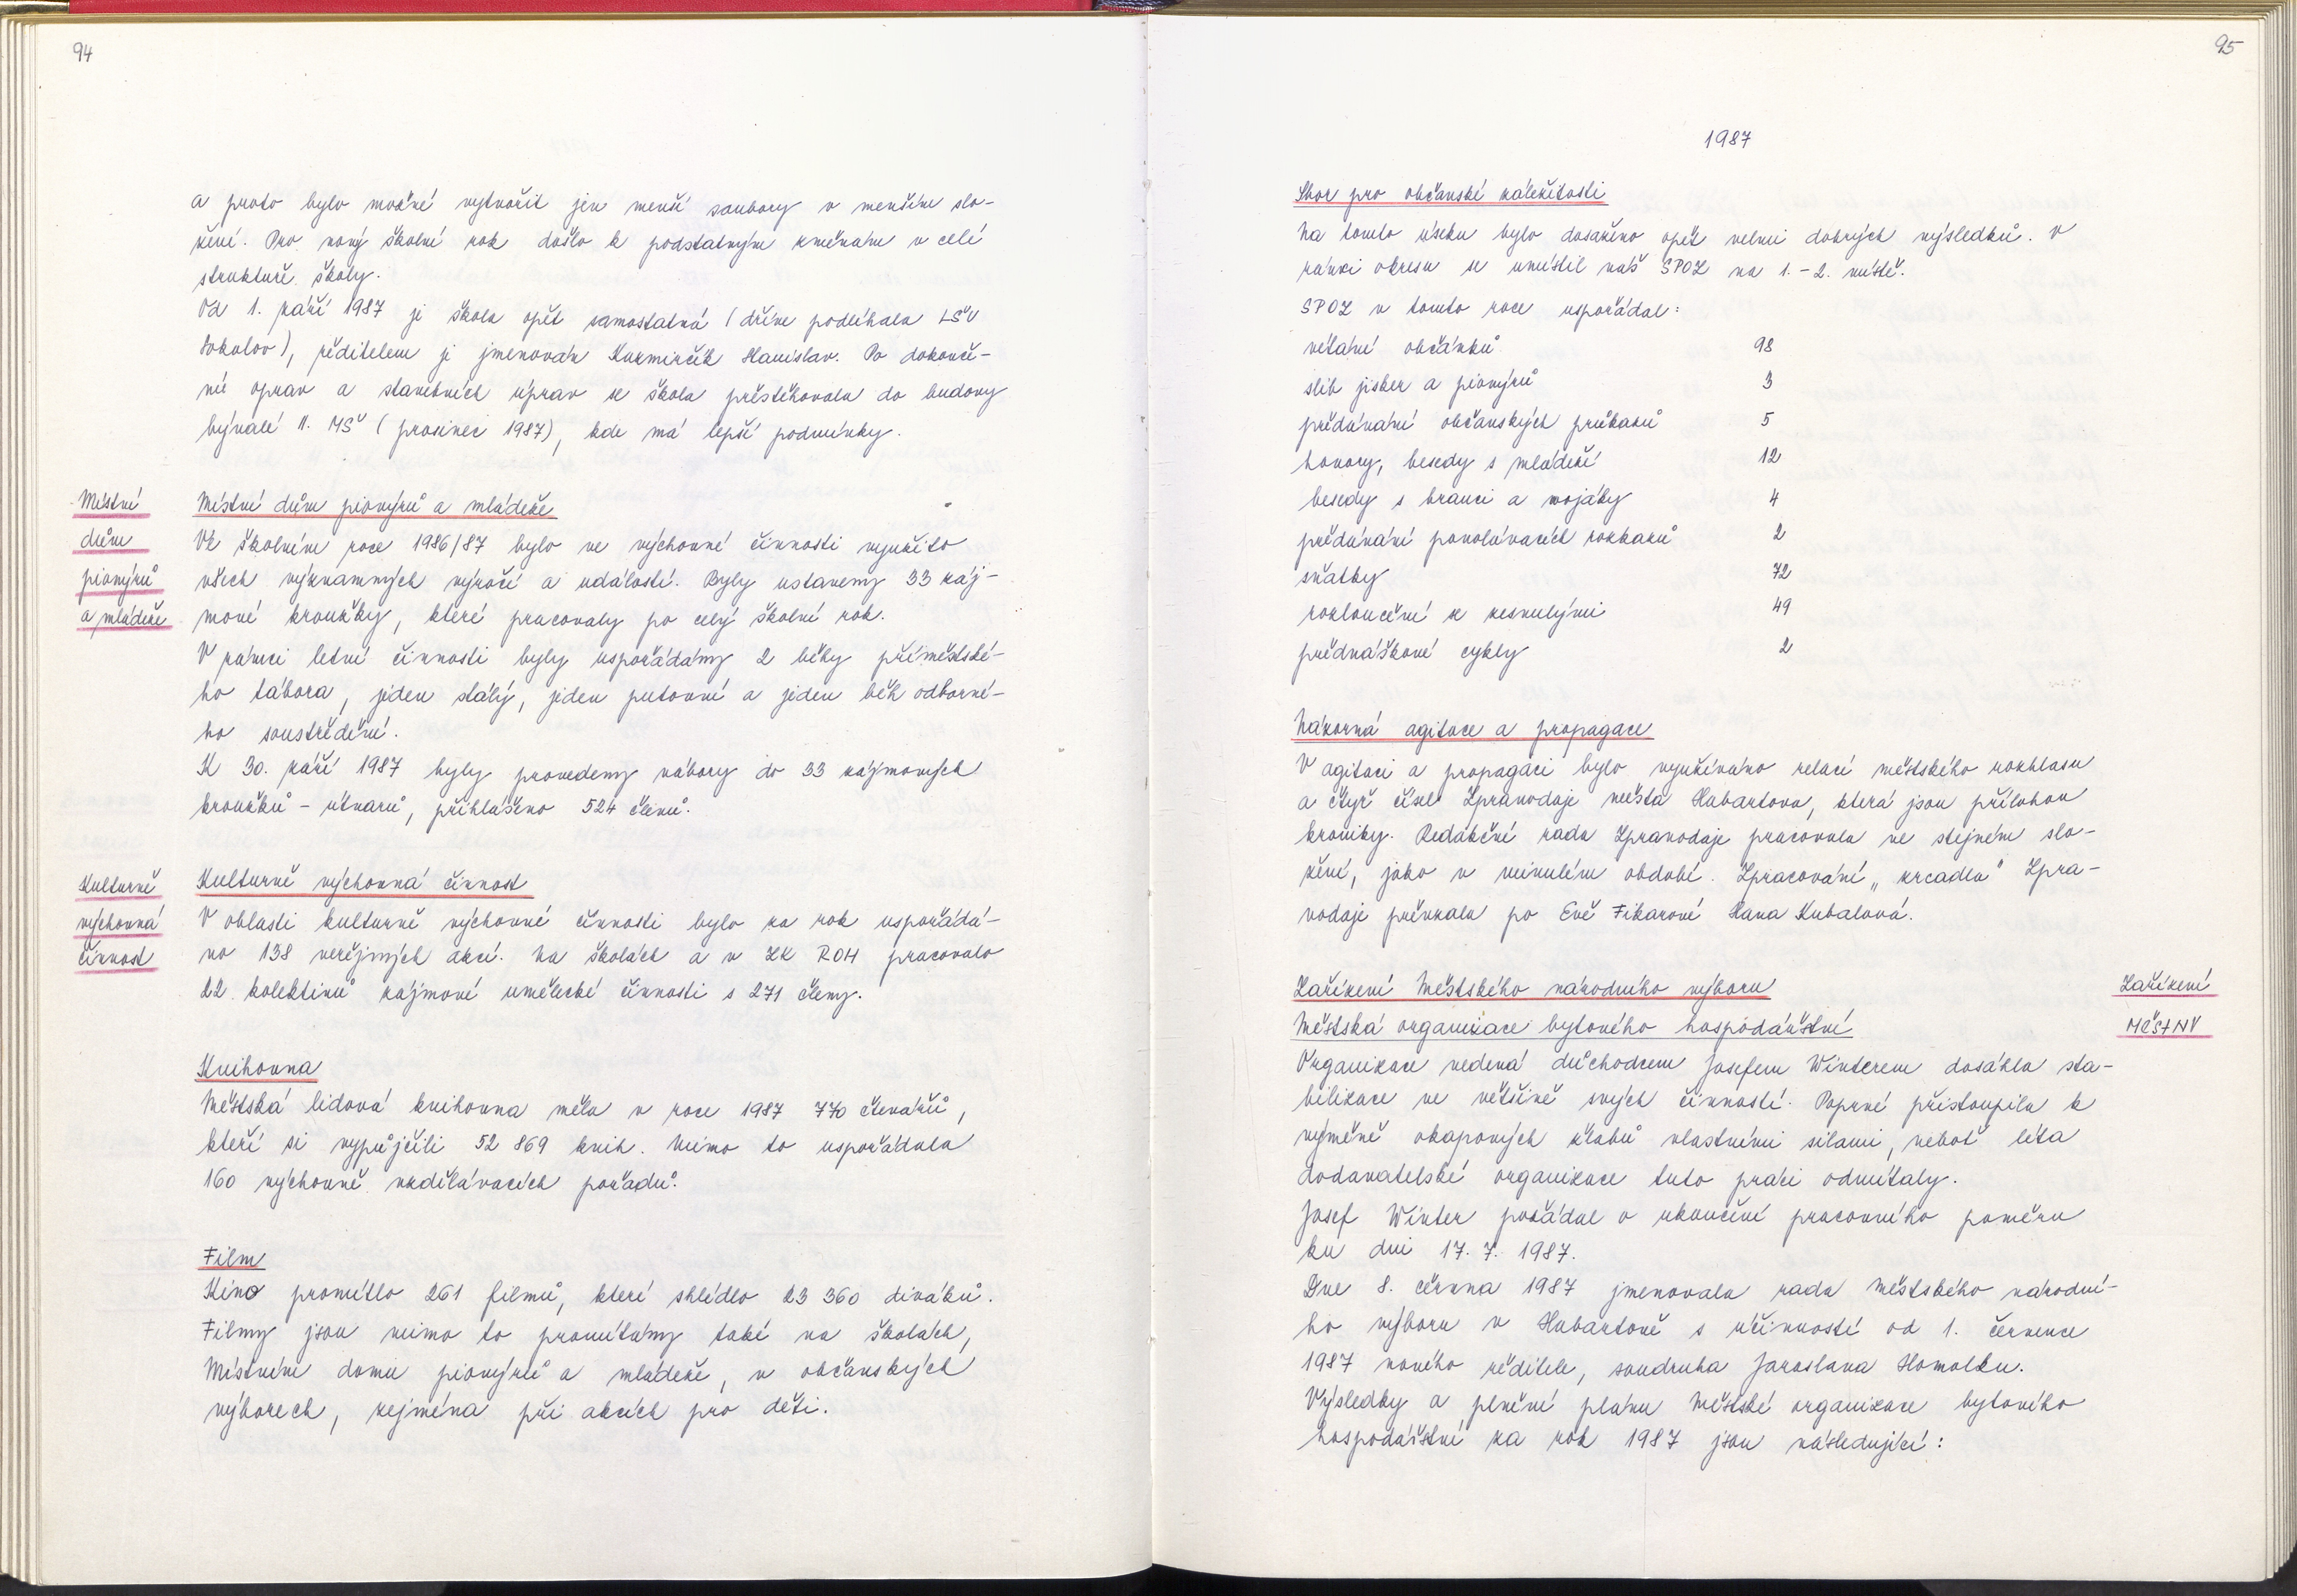 94
a proto bylo možné vytvořit jen menší soubory v menším slo-
žení. Pro nový školní rok došlo k podstatným změnám v celé
struktuře školy.
Od 1. září 1987 je škola opět samostatná (dříve podléhala LŠU
Sokolov), ředitelem je jmenován Kuzmirčík Stanislav. Po dokonče-
ní oprav a stavebních úprav se škola přestěhovala do budovy
bývalé II. MŠ (prosinec 1987), kde má lepší podmínky.
Místní
dům
pionýrů
a mládeže
Místní dům pionýrů a mládeže
Ve školním roce 1986/87 bylo ve výchovné činnosti využito
všech významných výročí a událostí. Byly ustaveny 33 záj-
mové kroužky, které pracovaly po celý školní rok.
V rámci letní činnosti byly uspořádány 2 běhy příměstské-
ho tábora, jeden stálý, jeden putovní a jeden běh odborné-
ho soustředění.
K 30. září 1987 byly provedeny nábory do 33 zájmových
kroužků - útvarů, přihlášeno 524 členů.
Kulturně
výchovná
činnost
Kulturně výchovná činnost
V oblasti kulturně výchovné činnosti bylo za rok uspořádá-
no 138 veřejných akcí. Na školách a v ZK ROH pracovalo
22 kolektivů zájmové umělecké činnosti s 271 členy.
Knihovna
Městská lidová knihovna měla v roce 1987 770 čtenářů,
kteří si vypůjčili 52 869 knih. Mimo to uspořádala
160 výchovně vzdělávacích pořadů.
Film
Kino promítlo 261 filmů, které shlédlo 23 360 diváků.
Filmy jsou mimo to promítány také na školách,
Místním domu pionýrů a mládeže, v občanských
výborech, zejména při akcích pro děti.
95
1987
Sbor pro občanské záležitosti
Na tomto úseku bylo dosaženo opět velmi dobrých výsledků. V
rámci okresu se umístil náš SPOZ na 1.-2. místě.
SPOZ v tomto roce uspořádal:
vítání občánků 98
slib jisker a pionýrů 3
předávání občanských průkazů 5
hovory, besedy s mládeží 12
besedy s branci a vojáky 4
předávání povolávacích rozkazů 2
sňatky 72
rozloučení se zesnulými 49
přednáškové cykly 2
Názorná agitace a propagace
V agitaci a propagaci bylo využíváno relací městského rozhlasu
a čtyř čísel Zpravodaje města Habartova, která jsou přílohou
kroniky. Redakční rada Zpravodaje pracovala ve stejném slo-
žení, jako v minulém období. Zpracování „zrcadla" Zpra-
vodaje převzala po Evě Fikarové Hana Kubalová.
Zařízení Městského národního výboru
Zařízení
MěstNV
Městská organizace bytového hospodářství
Organizace vedená důchodcem Josefem Winterem dosáhla sta-
bilizace ve většině svých činností. Poprvé přistoupila k
výměně okapových žlabů vlastními silami, neboť léta
dodavatelské organizace tuto práci odmítaly.
Josef Winter požádal o ukončení pracovního poměru
ku dni 17. 7. 1987.
Dne 8. června 1987 jmenovala rada Městského národní-
ho výboru v Habartově s účinností od 1. července
1987 nového ředitele, soudruha Jaroslava Homolku.
Výsledky a plnění plánu Městské organizace bytového
hospodářství za rok 1987 jsou následující: